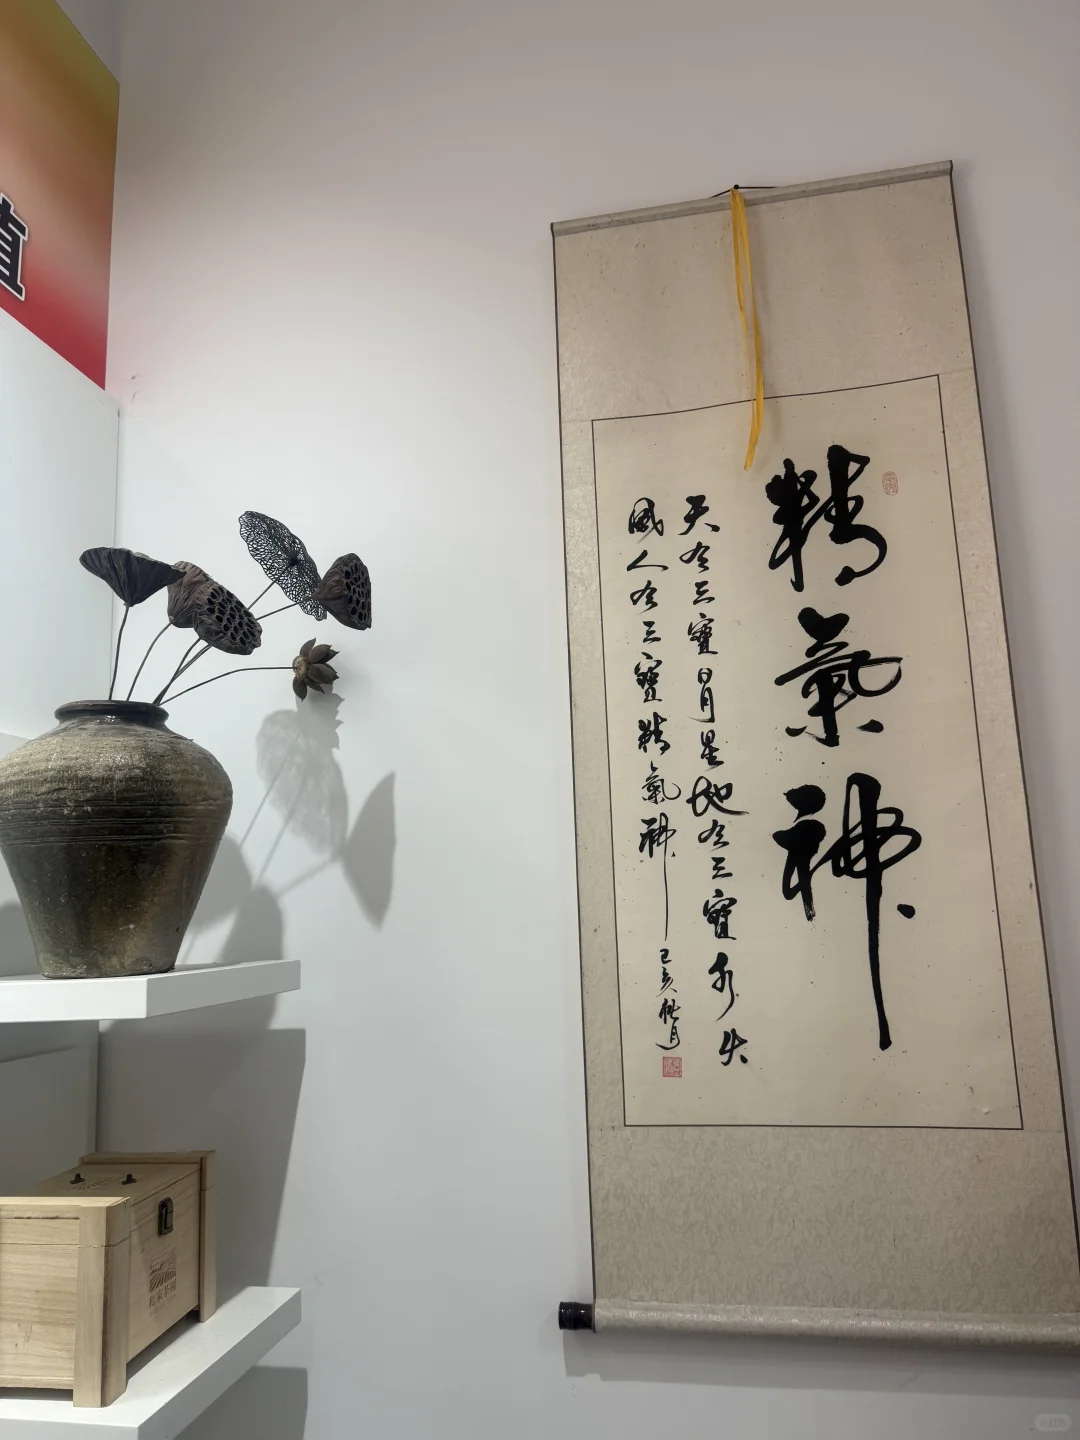 精氣神
天有三寶日月星地有三寶水火
風人有三寶精氣神
己亥秋月